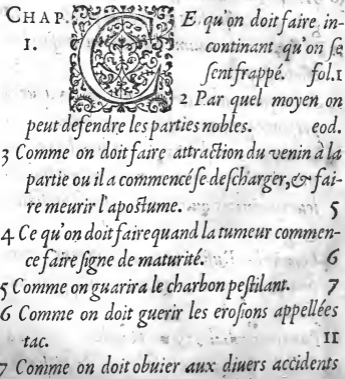 CHAP. CE qu'on doit faire in-
1. continant qu'on se
sent frappé. fol.1
2 Par quel moyen on
peut defendre les parties nobles. eod.
3 Comme on doit faire attraction du venin à la
partie ou il a commencé se descharger, & fai-
re meurir l'apostume. 5
4 Ce qu'on doit faire quand la tumeur commen-
ce faire signe de maturité. 6
5 Comme on guarira le charbon pestilant. 7
6 Comme on doit guerir les erosions appellées
tac. 11
7 Comme on doit obuier aux diuers accidents